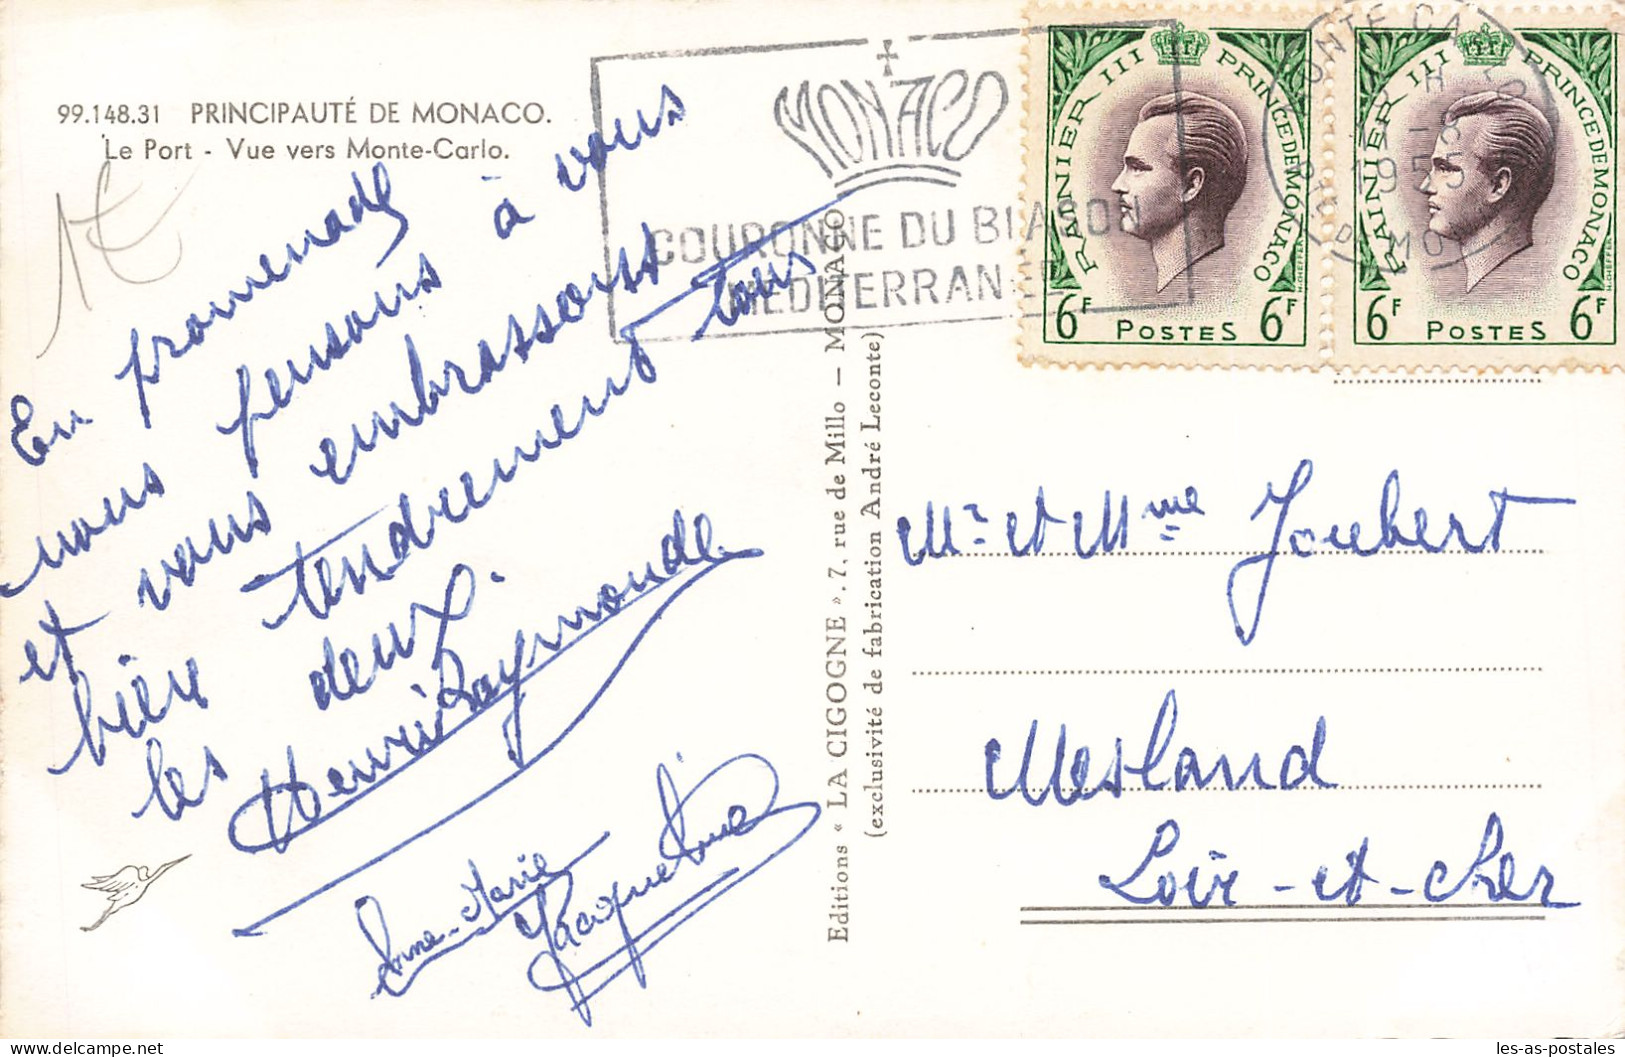 99.148.31 PRINCIPAUTÉ DE MONACO.
Le Port - Vue vers Monte-Carlo.
En promenade
nous pensons à vous
et vous embrassons
bien tendrement tous
les deux.
Henri Raymonde
Anne-Marie
Jacqueline
Editions « LA CIGOGNE ». 7, rue de Millo — MONACO
(exclusivité de fabrication André Leconte)
MONACO
COURONNE DU BLASON
MEDITERRANEEN
RAINIER III PRINCE DE MONACO
6F POSTES 6F
RAINIER III PRINCE DE MONACO
6F POSTES 6F
MONTE-CARLO
1955
Mr et Mme Joubert
Mesland
Loir-et-Cher
les-as-postales